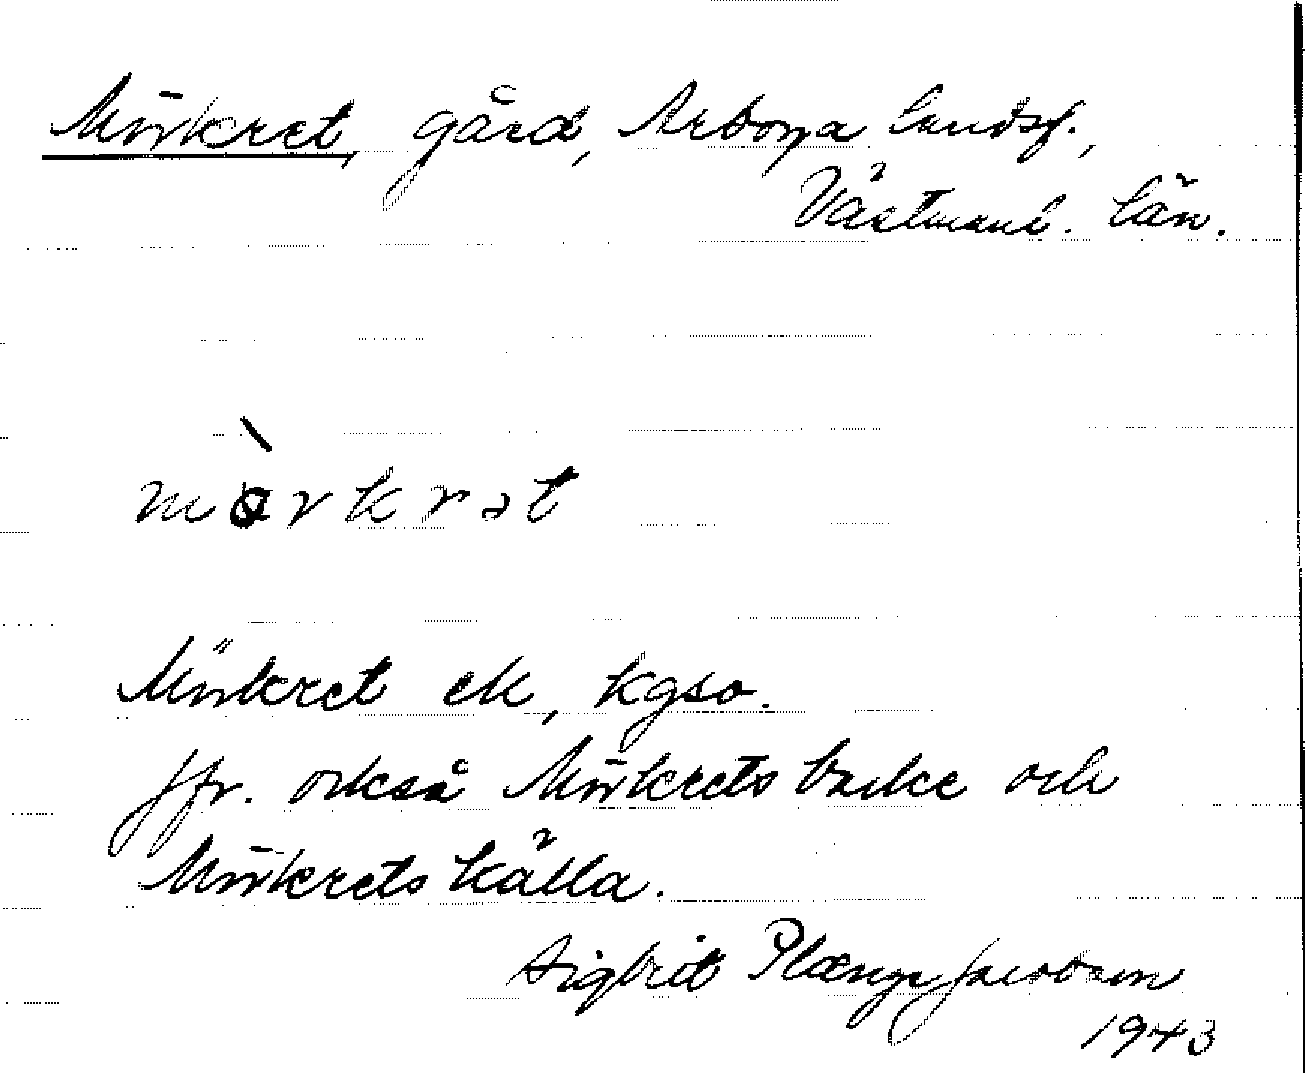 Mörkret, gård, Arboga landsf.,
Västmanl. län.
mòrkrət
Mörkret ek, kgso.
Jfr. också Mörkrets backe och
Mörkrets källa.
Sigbrit Plænge Jacobson
1943